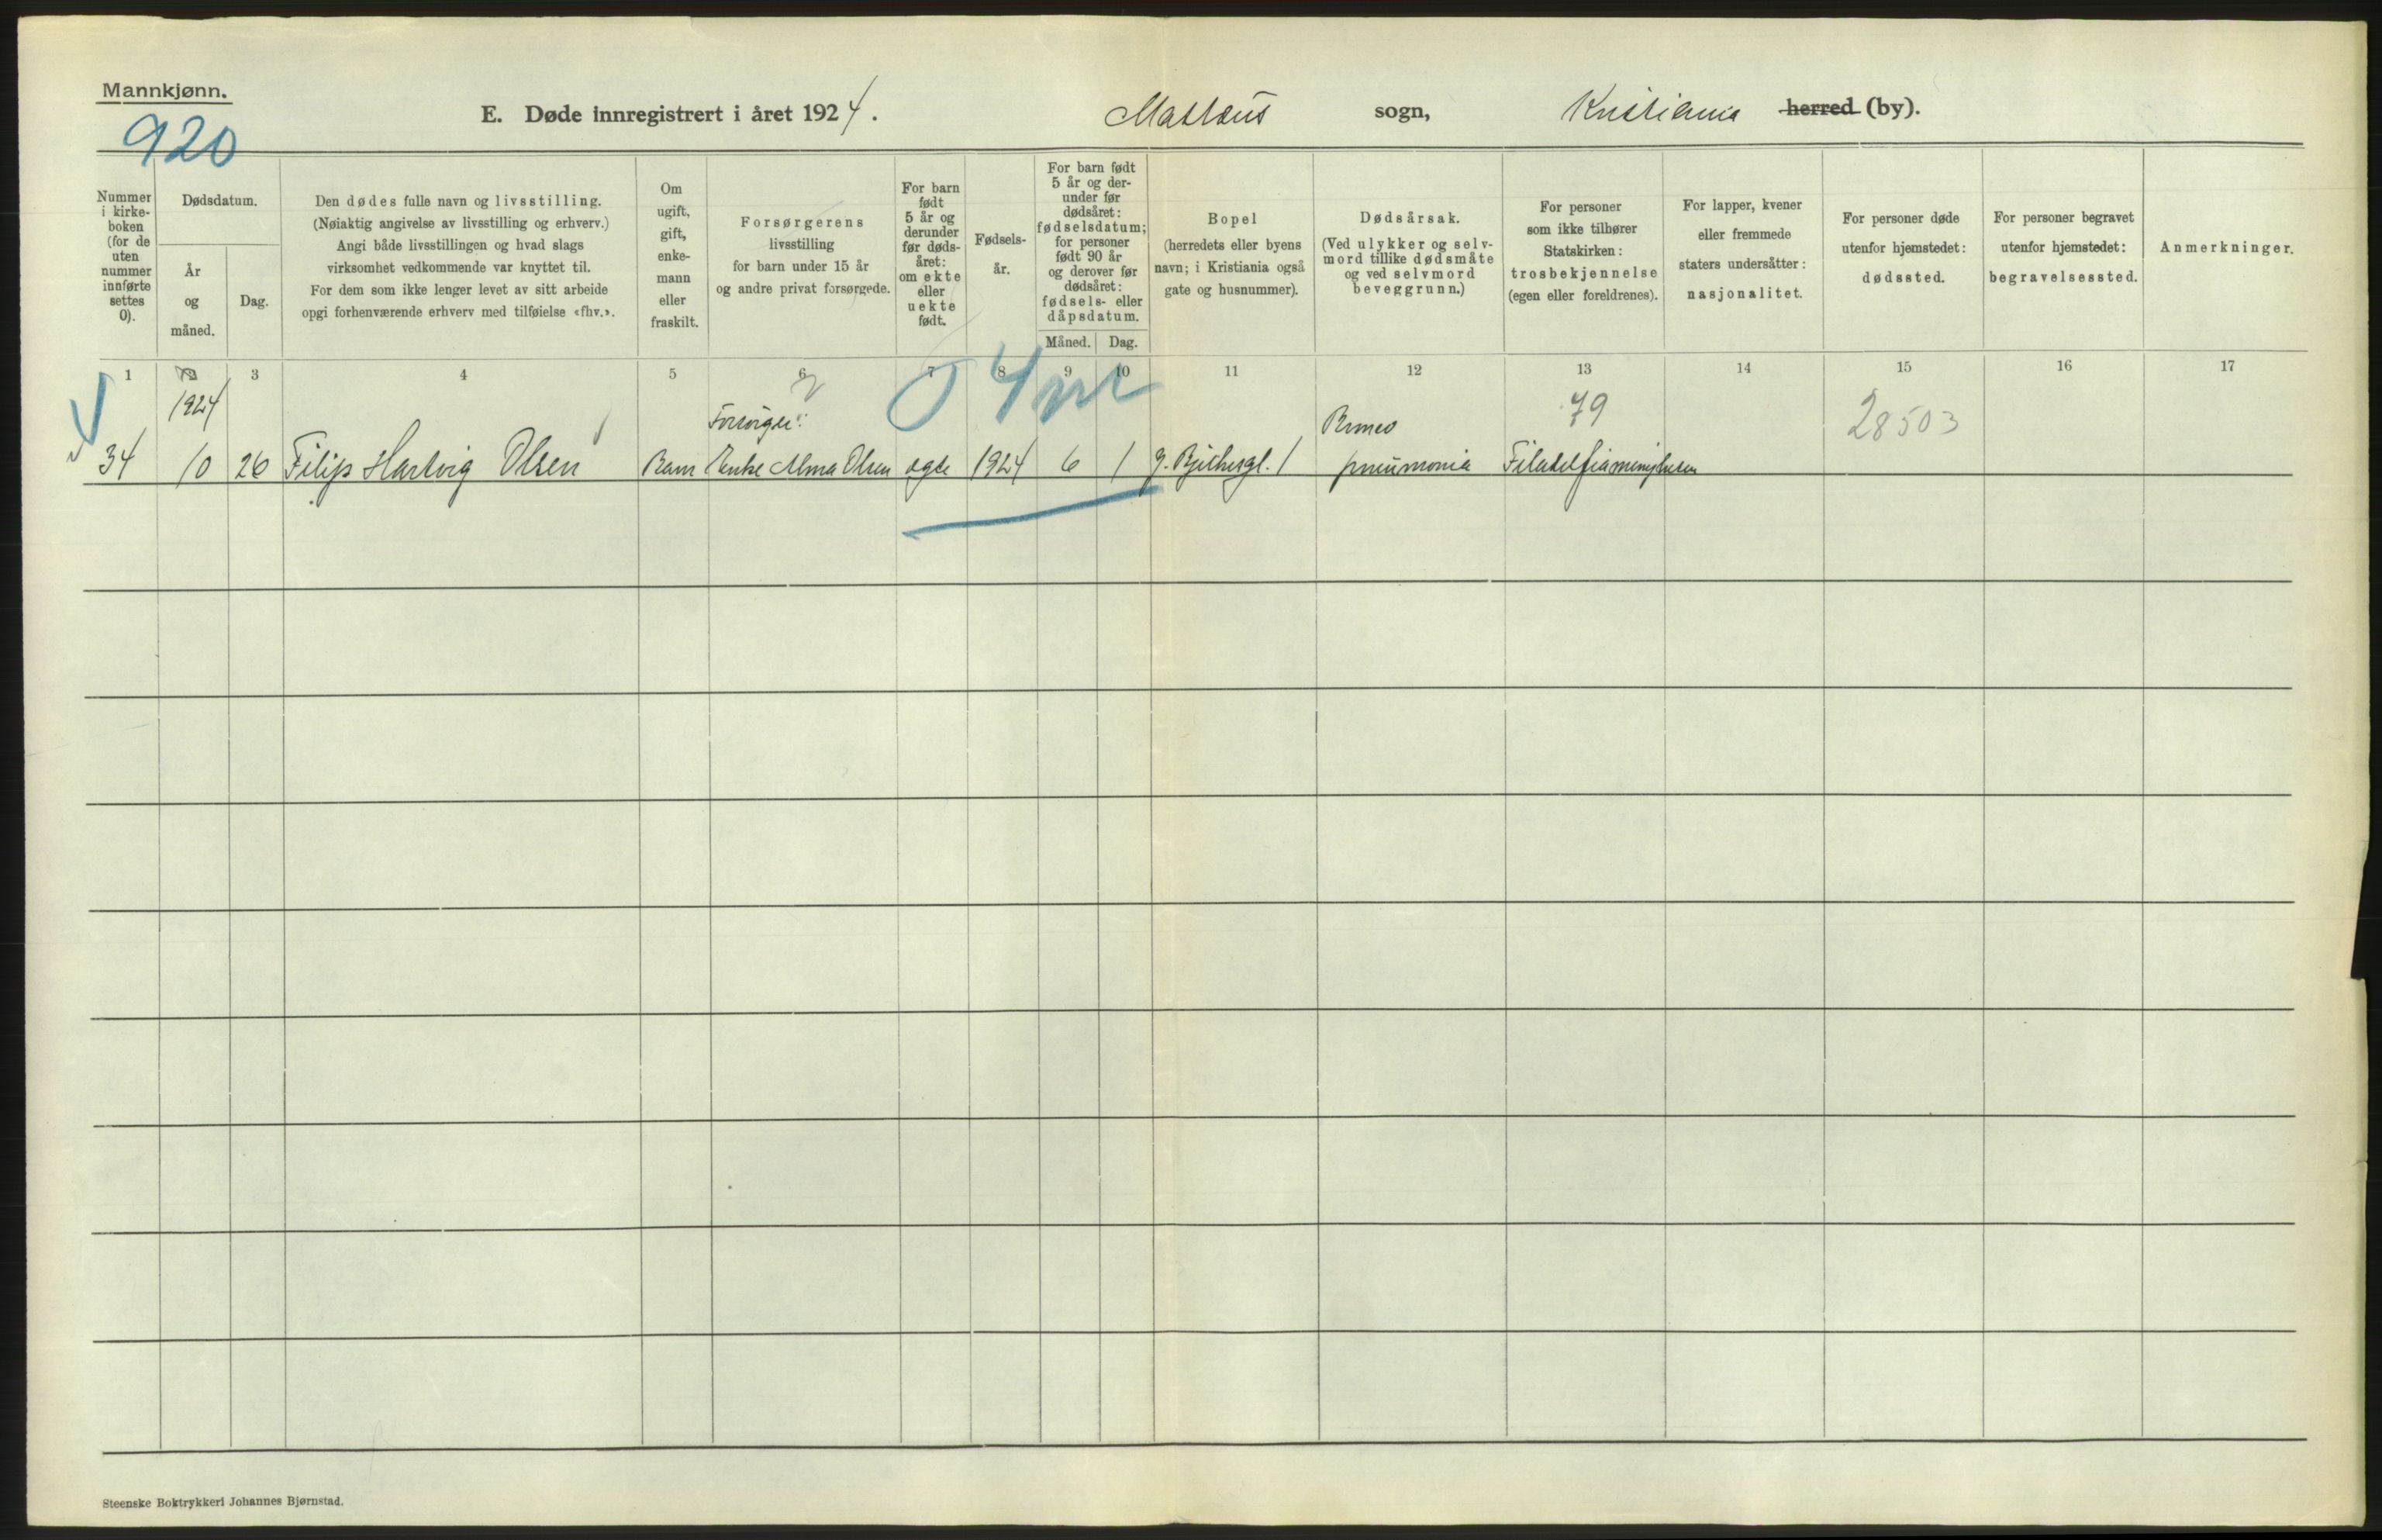 Mannkjønn.
920
E. Døde innregistrert i året 1924. Mattæus sogn, Kristiania herred (by).
Nummer i kirke- boken (for de uten nummer innførte settes 0).
Dødsdatum.
År og måned.
Dag.
Den dødes fulle navn og livsstilling.
(Nøiaktig angivelse av livsstilling og erhverv.)
Angi både livsstillingen og hvad slags
virksomhet vedkommende var knyttet til.
For dem som ikke lenger levet av sitt arbeide
opgi forhenværende erhverv med tilføielse «fhv.».
Om ugift, gift, enke- mann eller fraskilt.
Forsørgerens
livsstilling
for barn under 15 år
og andre privat forsørgede.
For barn født 5 år og derunder før døds- året: om ekte eller uekte født.
Fødsels- år.
For barn født 5 år og der- under før dødsåret: fødselsdatum; for personer født 90 år og derover før dødsåret: fødsels- eller dåpsdatum.
Måned. Dag.
Bopel
(herredets eller byens
navn; i Kristiania også
gate og husnummer).
Dødsårsak.
(Ved ulykker og selv-
mord tillike dødsmåte
og ved selvmord
beveggrunn.)
For personer
som ikke tilhører
Statskirken:
trosbekjennelse
(egen eller foreldrenes).
For lapper, kvener
eller fremmede
staters undersåtter:
nasjonalitet.
For personer døde
utenfor hjemstedet:
dødssted.
For personer begravet
utenfor hjemstedet:
begravelsessted.
Anmerkninger.
1 2 3 4 5 6 7 8 9 10 11 12 13 14 15 16 17
1924
Forsørger: Bronco 79 28503
34 10 26 Filip Hartvig Olsen Barn Enke Alma Olsen ægte 1924 6 1 1 pneumonia Filadelfiamenigheten
Steenske Boktrykkeri Johannes Bjørnstad.